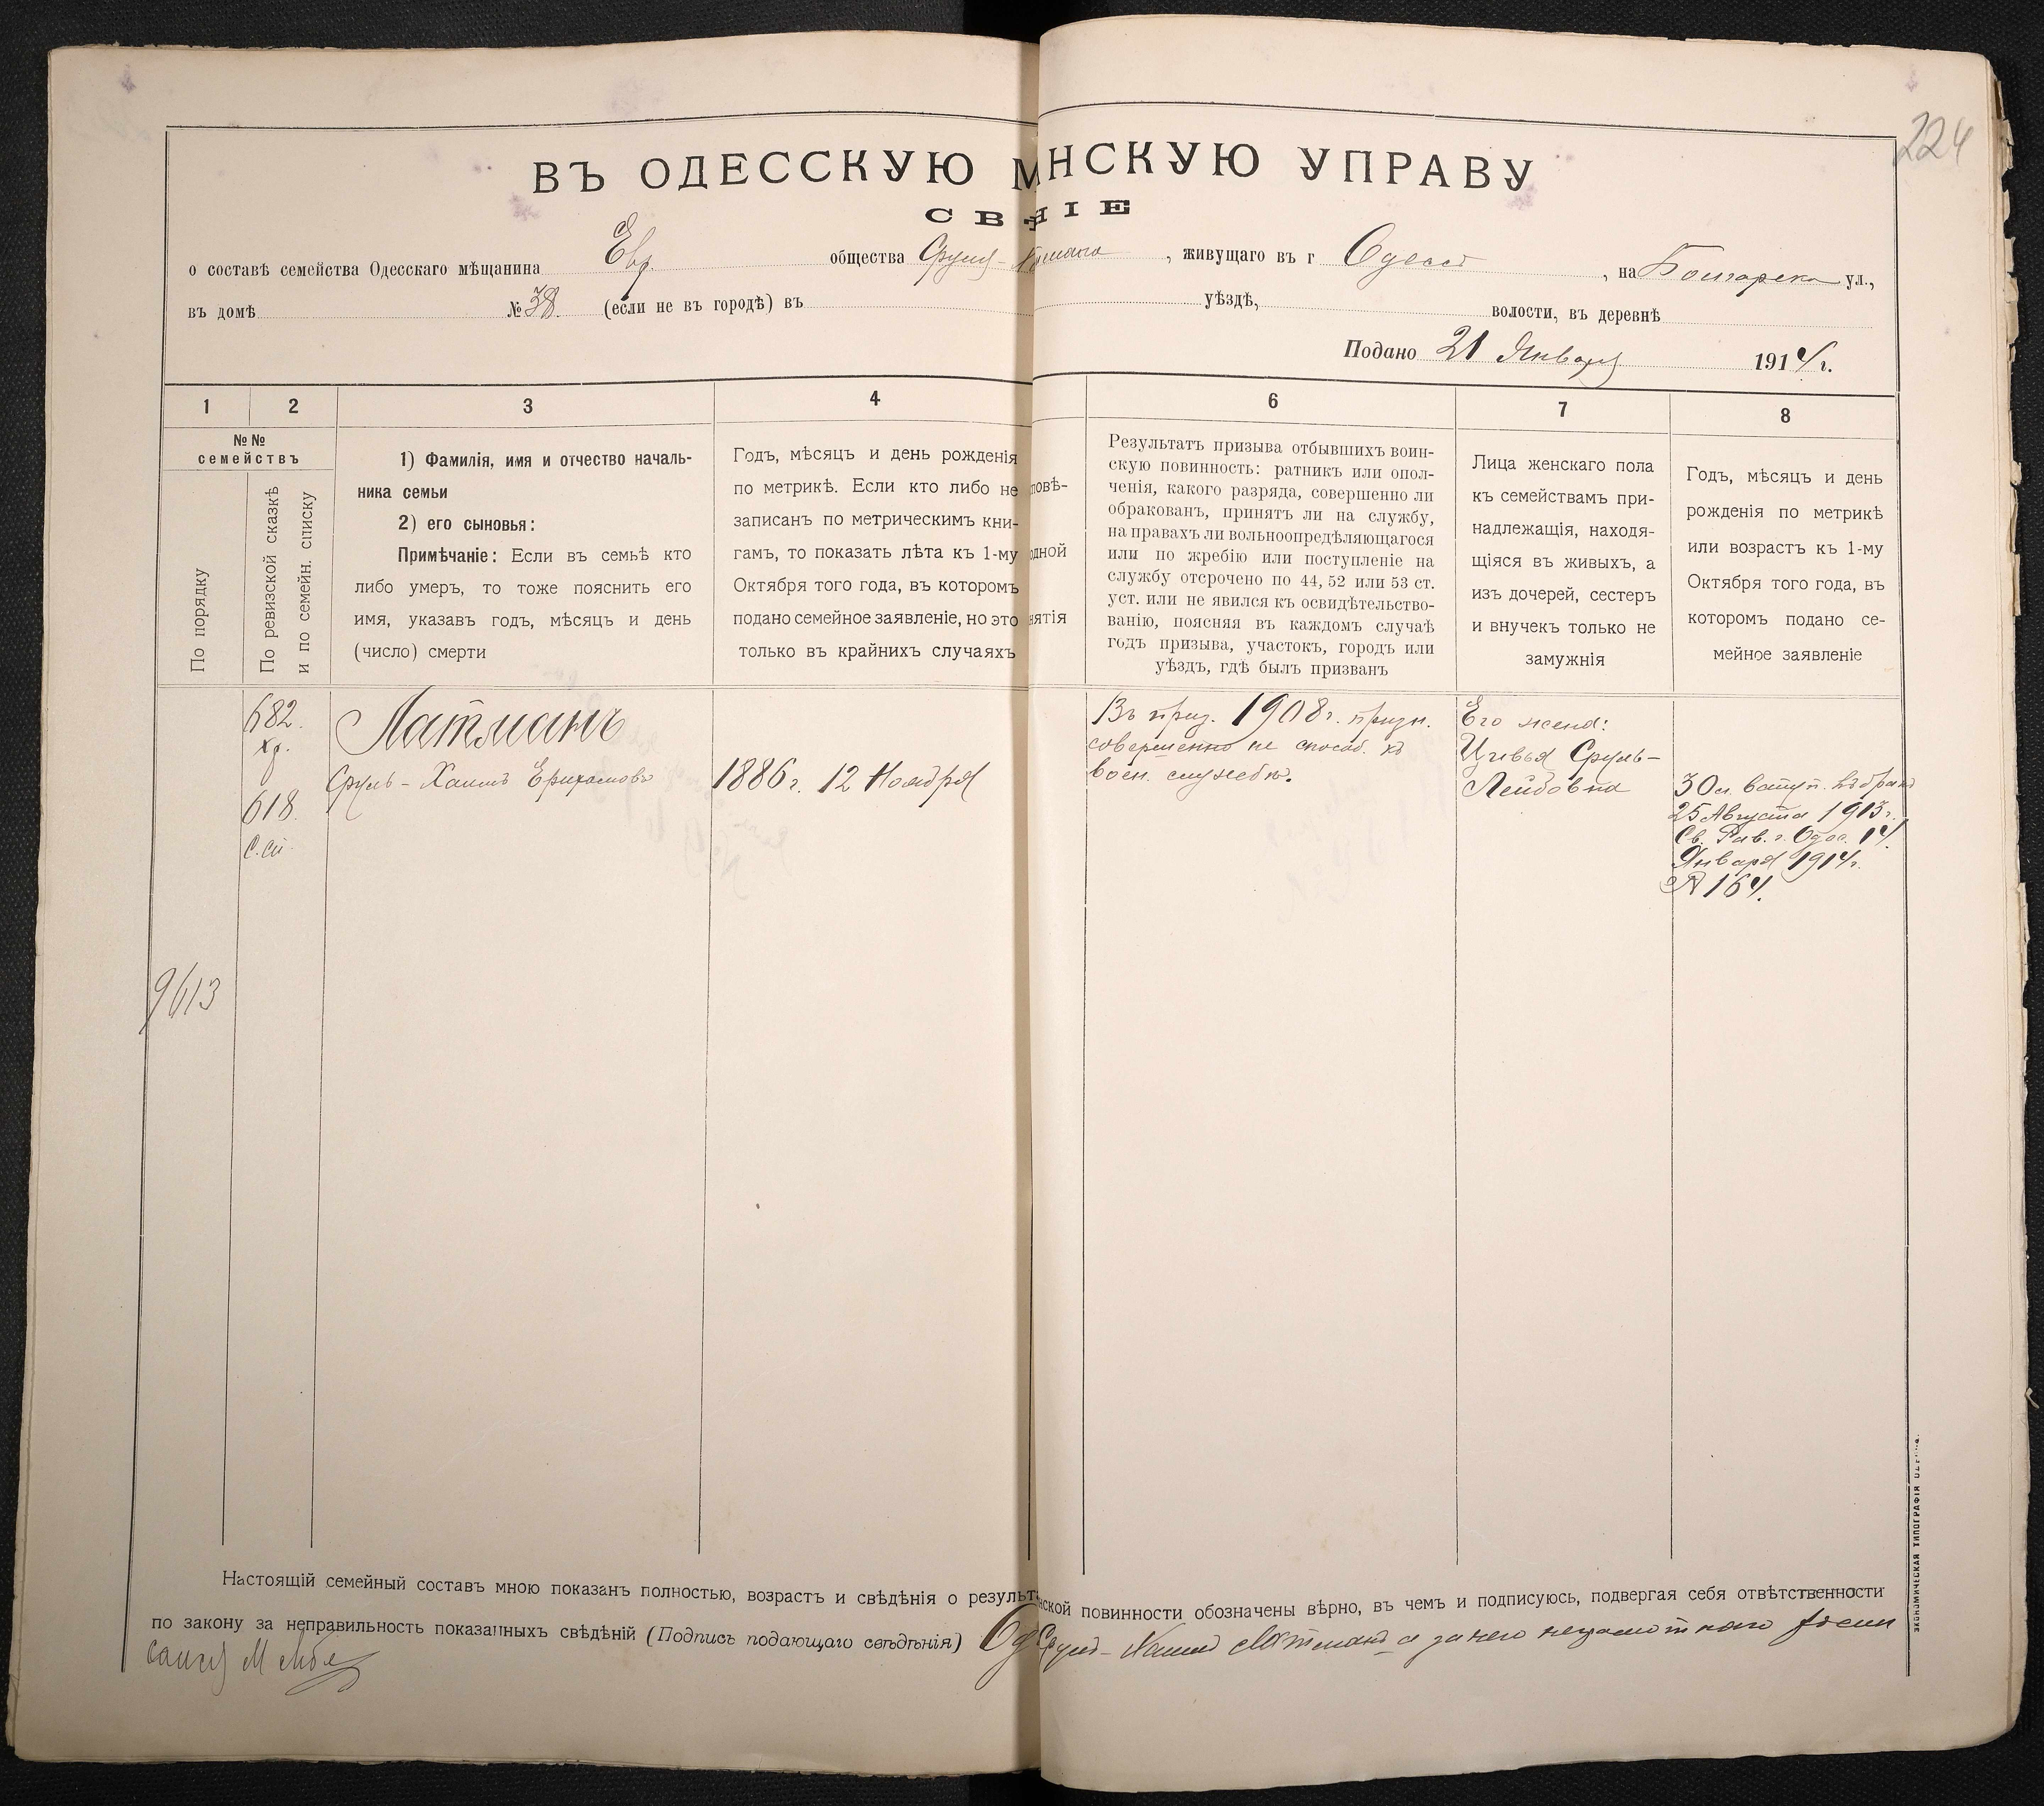 224
ВЪ ОДЕССКУЮ М НСКУЮ УПРАВУ
СВ НІЕ
о составѣ семейства Одесскаго мѣщанина Евр. общества Сруля-Хаима, живущаго въ г Одессѣ, на Болгарской ул.,
въ домѣ № 38. (если не въ городѣ) въ уѣздѣ, волости, въ деревнѣ
Подано 21 Января 1914 г.
1
2
3
4
6
7
8
№№
семействъ
По порядку
По ревизской сказкѣ
и по семейн. списку
1) Фамилія, имя и отчество началь-
ника семьи
2) его сыновья:
Примѣчаніе: Если въ семьѣ кто
либо умеръ, то тоже пояснить его
имя, указавъ годъ, мѣсяцъ и день
(число) смерти
Годъ, мѣсяцъ и день рожденія
по метрикѣ. Если кто либо не
записанъ по метрическимъ кни-
гамъ, то показать лѣта къ 1-му
Октября того года, въ которомъ
подано семейное заявленіе, но это
только въ крайнихъ случаяхъ
повѣ-
одной
нятія
Результатъ призыва отбывшихъ воин-
скую повинность: ратникъ или опол-
ченія, какого разряда, совершенно ли
обракованъ, принятъ ли на службу,
на правахъ ли вольноопредѣляющагося
или по жребію или поступленіе на
службу отсрочено по 44, 52 или 53 ст.
уст. или не явился къ освидѣтельство-
ванію, поясняя въ каждомъ случаѣ
годъ призыва, участокъ, городъ или
уѣздъ, гдѣ былъ призванъ
Лица женскаго пола
къ семействамъ при-
надлежащія, находя-
щіяся въ живыхъ, а
изъ дочерей, сестеръ
и внучекъ только не
замужнія
Годъ, мѣсяцъ и день
рожденія по метрикѣ
или возрастъ къ 1-му
Октября того года, въ
которомъ подано се-
мейное заявленіе
682.
618.
с.сп.
9613
Латманъ
Сруль-Хаимъ Ефроимовъ
1886 г. 12 Ноября
Въ приз. 1908 г. призн.
совершенно не способ. къ
воен. службѣ.
Его жена:
Цивья Сруль-
Лейбовна
30 л. вступ. въ бракъ
25 Августа 1913 г.
Св. Рав. г. Одес. 14
Января 1914 г.
№ 164.
Настоящій семейный составъ мною показанъ полностью, возрастъ и свѣдѣнія о результ нской повинности обозначены вѣрно, въ чемъ и подписуюсь, подвергая себя отвѣтственности
по закону за неправильность показанныхъ свѣдѣній (Подпись подающаго свѣдѣнія) Од Сруль-Хаимъ Латманъ а за него неграмотнаго
ЭКОНОМИЧЕСКАЯ ТИПОГРАФІЯ